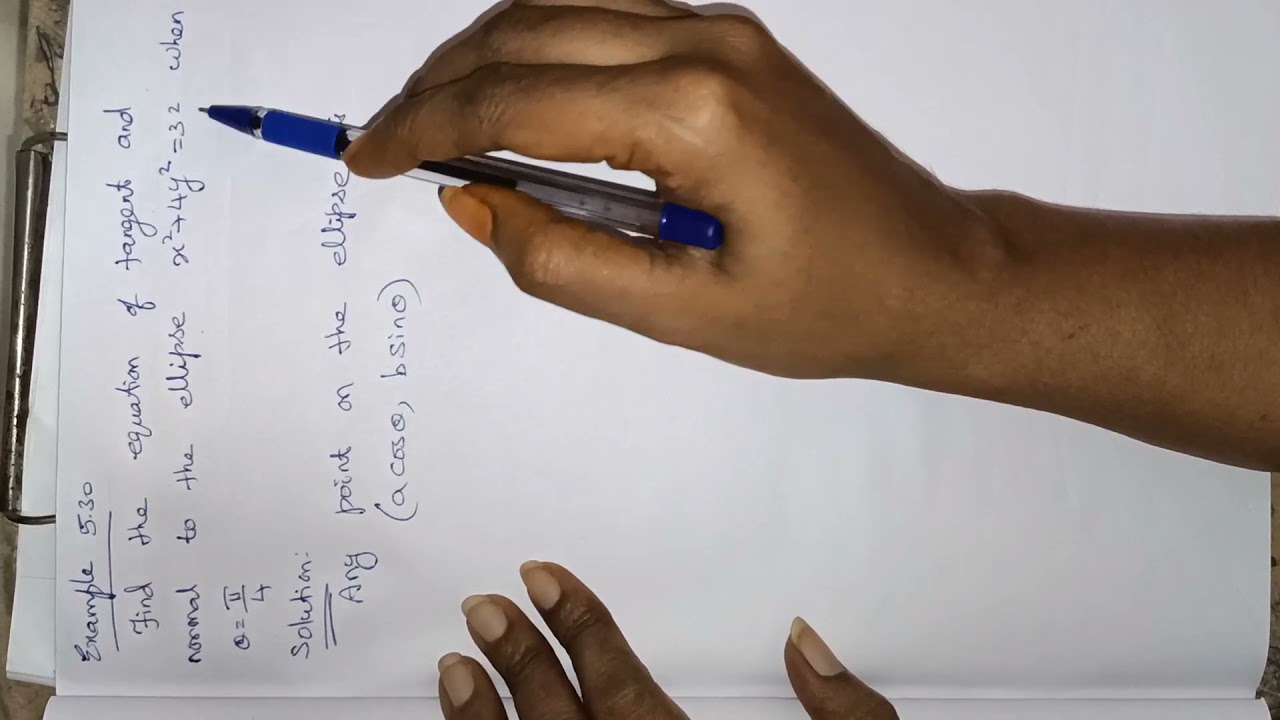 Example 5.30
Find the equation of tangent and
normal to the ellipse x²+4y²=32 when
θ=π/4
Solution:
Any point on the ellipse is
(a cosθ, b sinθ)